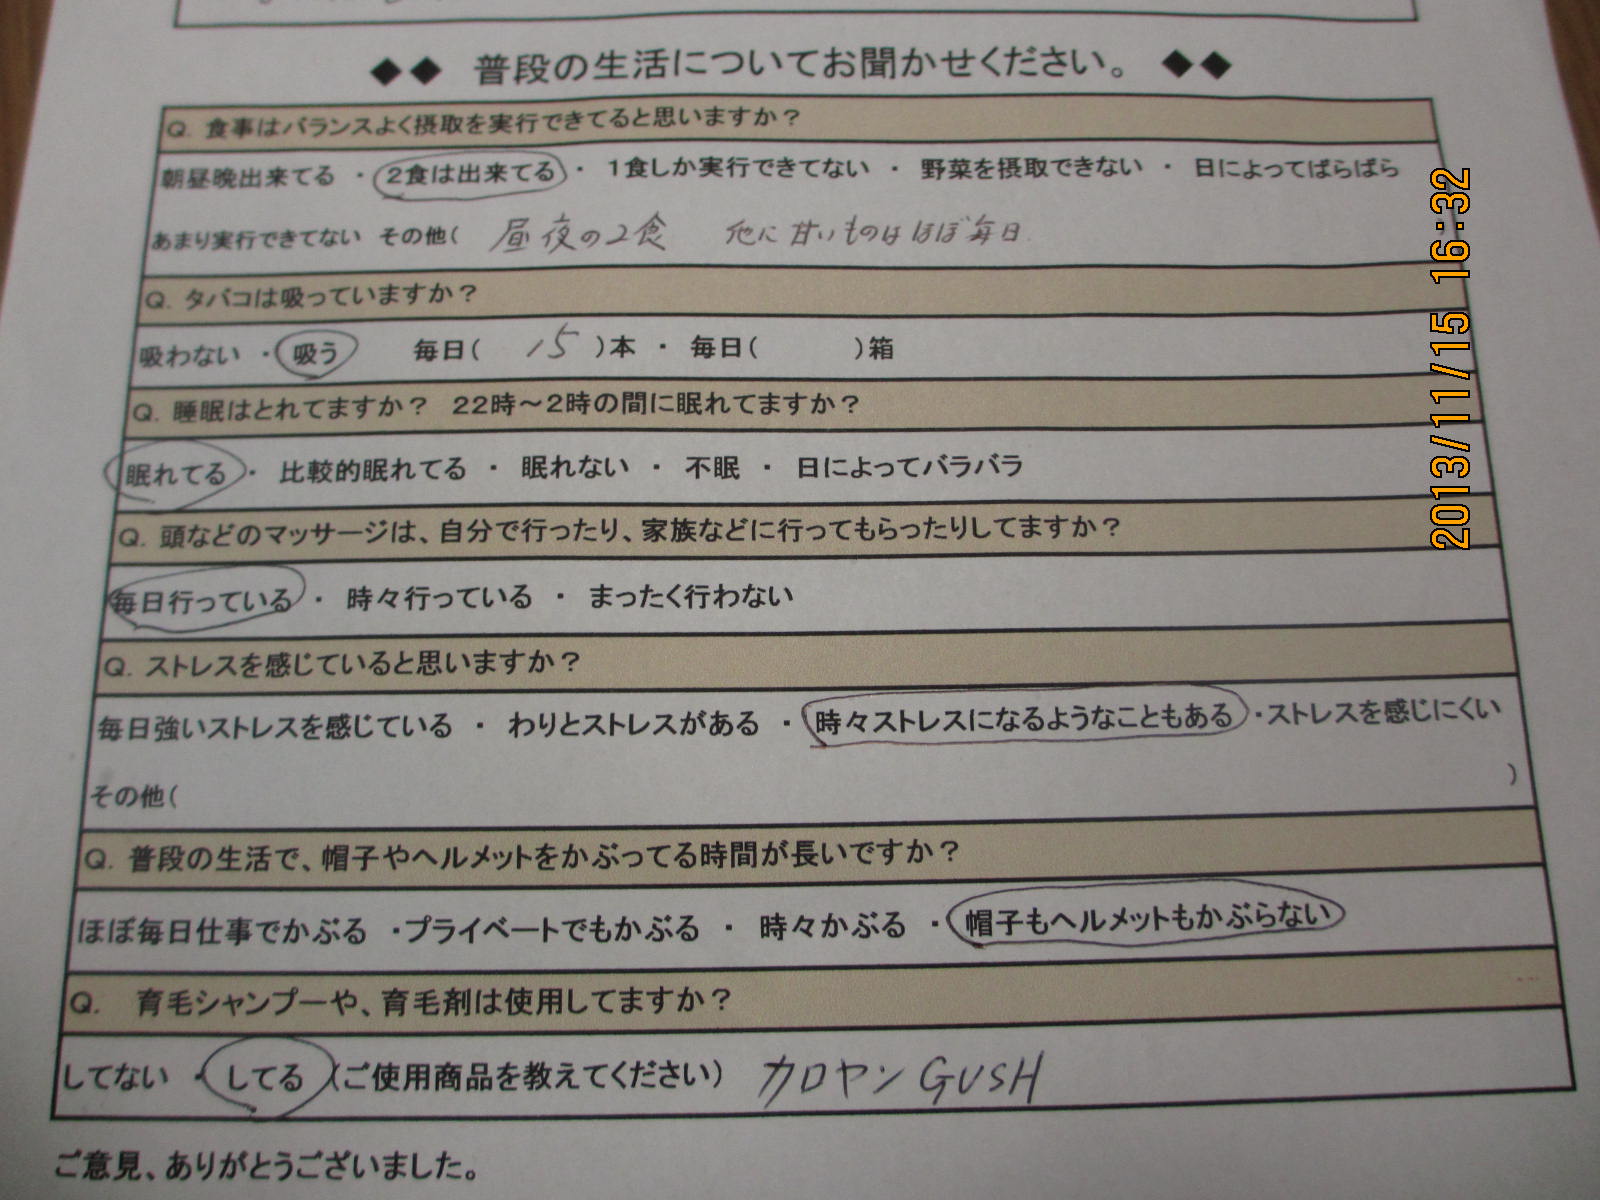 ◆◆ 普段の生活についてお聞かせください。 ◆◆
Q. 食事はバランスよく摂取を実行できてると思いますか？
朝昼晩出来てる ・ 2食は出来てる ・ 1食しか実行できてない ・ 野菜を摂取できない ・ 日によってばらばら
あまり実行できてない その他( 昼夜の2食 他に甘いものはほぼ毎日 )
Q. タバコは吸っていますか？
吸わない ・ 吸う 毎日( 15 )本 ・ 毎日( )箱
Q. 睡眠はとれてますか？ 22時～2時の間に眠れてますか？
眠れてる ・ 比較的眠れてる ・ 眠れない ・ 不眠 ・ 日によってバラバラ
Q. 頭などのマッサージは、自分で行ったり、家族などに行ってもらったりしてますか？
毎日行っている ・ 時々行っている ・ まったく行わない
Q. ストレスを感じていると思いますか？
毎日強いストレスを感じている ・ わりとストレスがある ・ 時々ストレスになるようなこともある ・ストレスを感じにくい
その他( )
Q. 普段の生活で、帽子やヘルメットをかぶってる時間が長いですか？
ほぼ毎日仕事でかぶる ・プライベートでもかぶる ・ 時々かぶる ・ 帽子もヘルメットもかぶらない
Q. 育毛シャンプーや、育毛剤は使用してますか？
してない ・ してる (ご使用商品を教えてください) カロヤン GUSH
ご意見、ありがとうございました。
2013/11/15 16:32